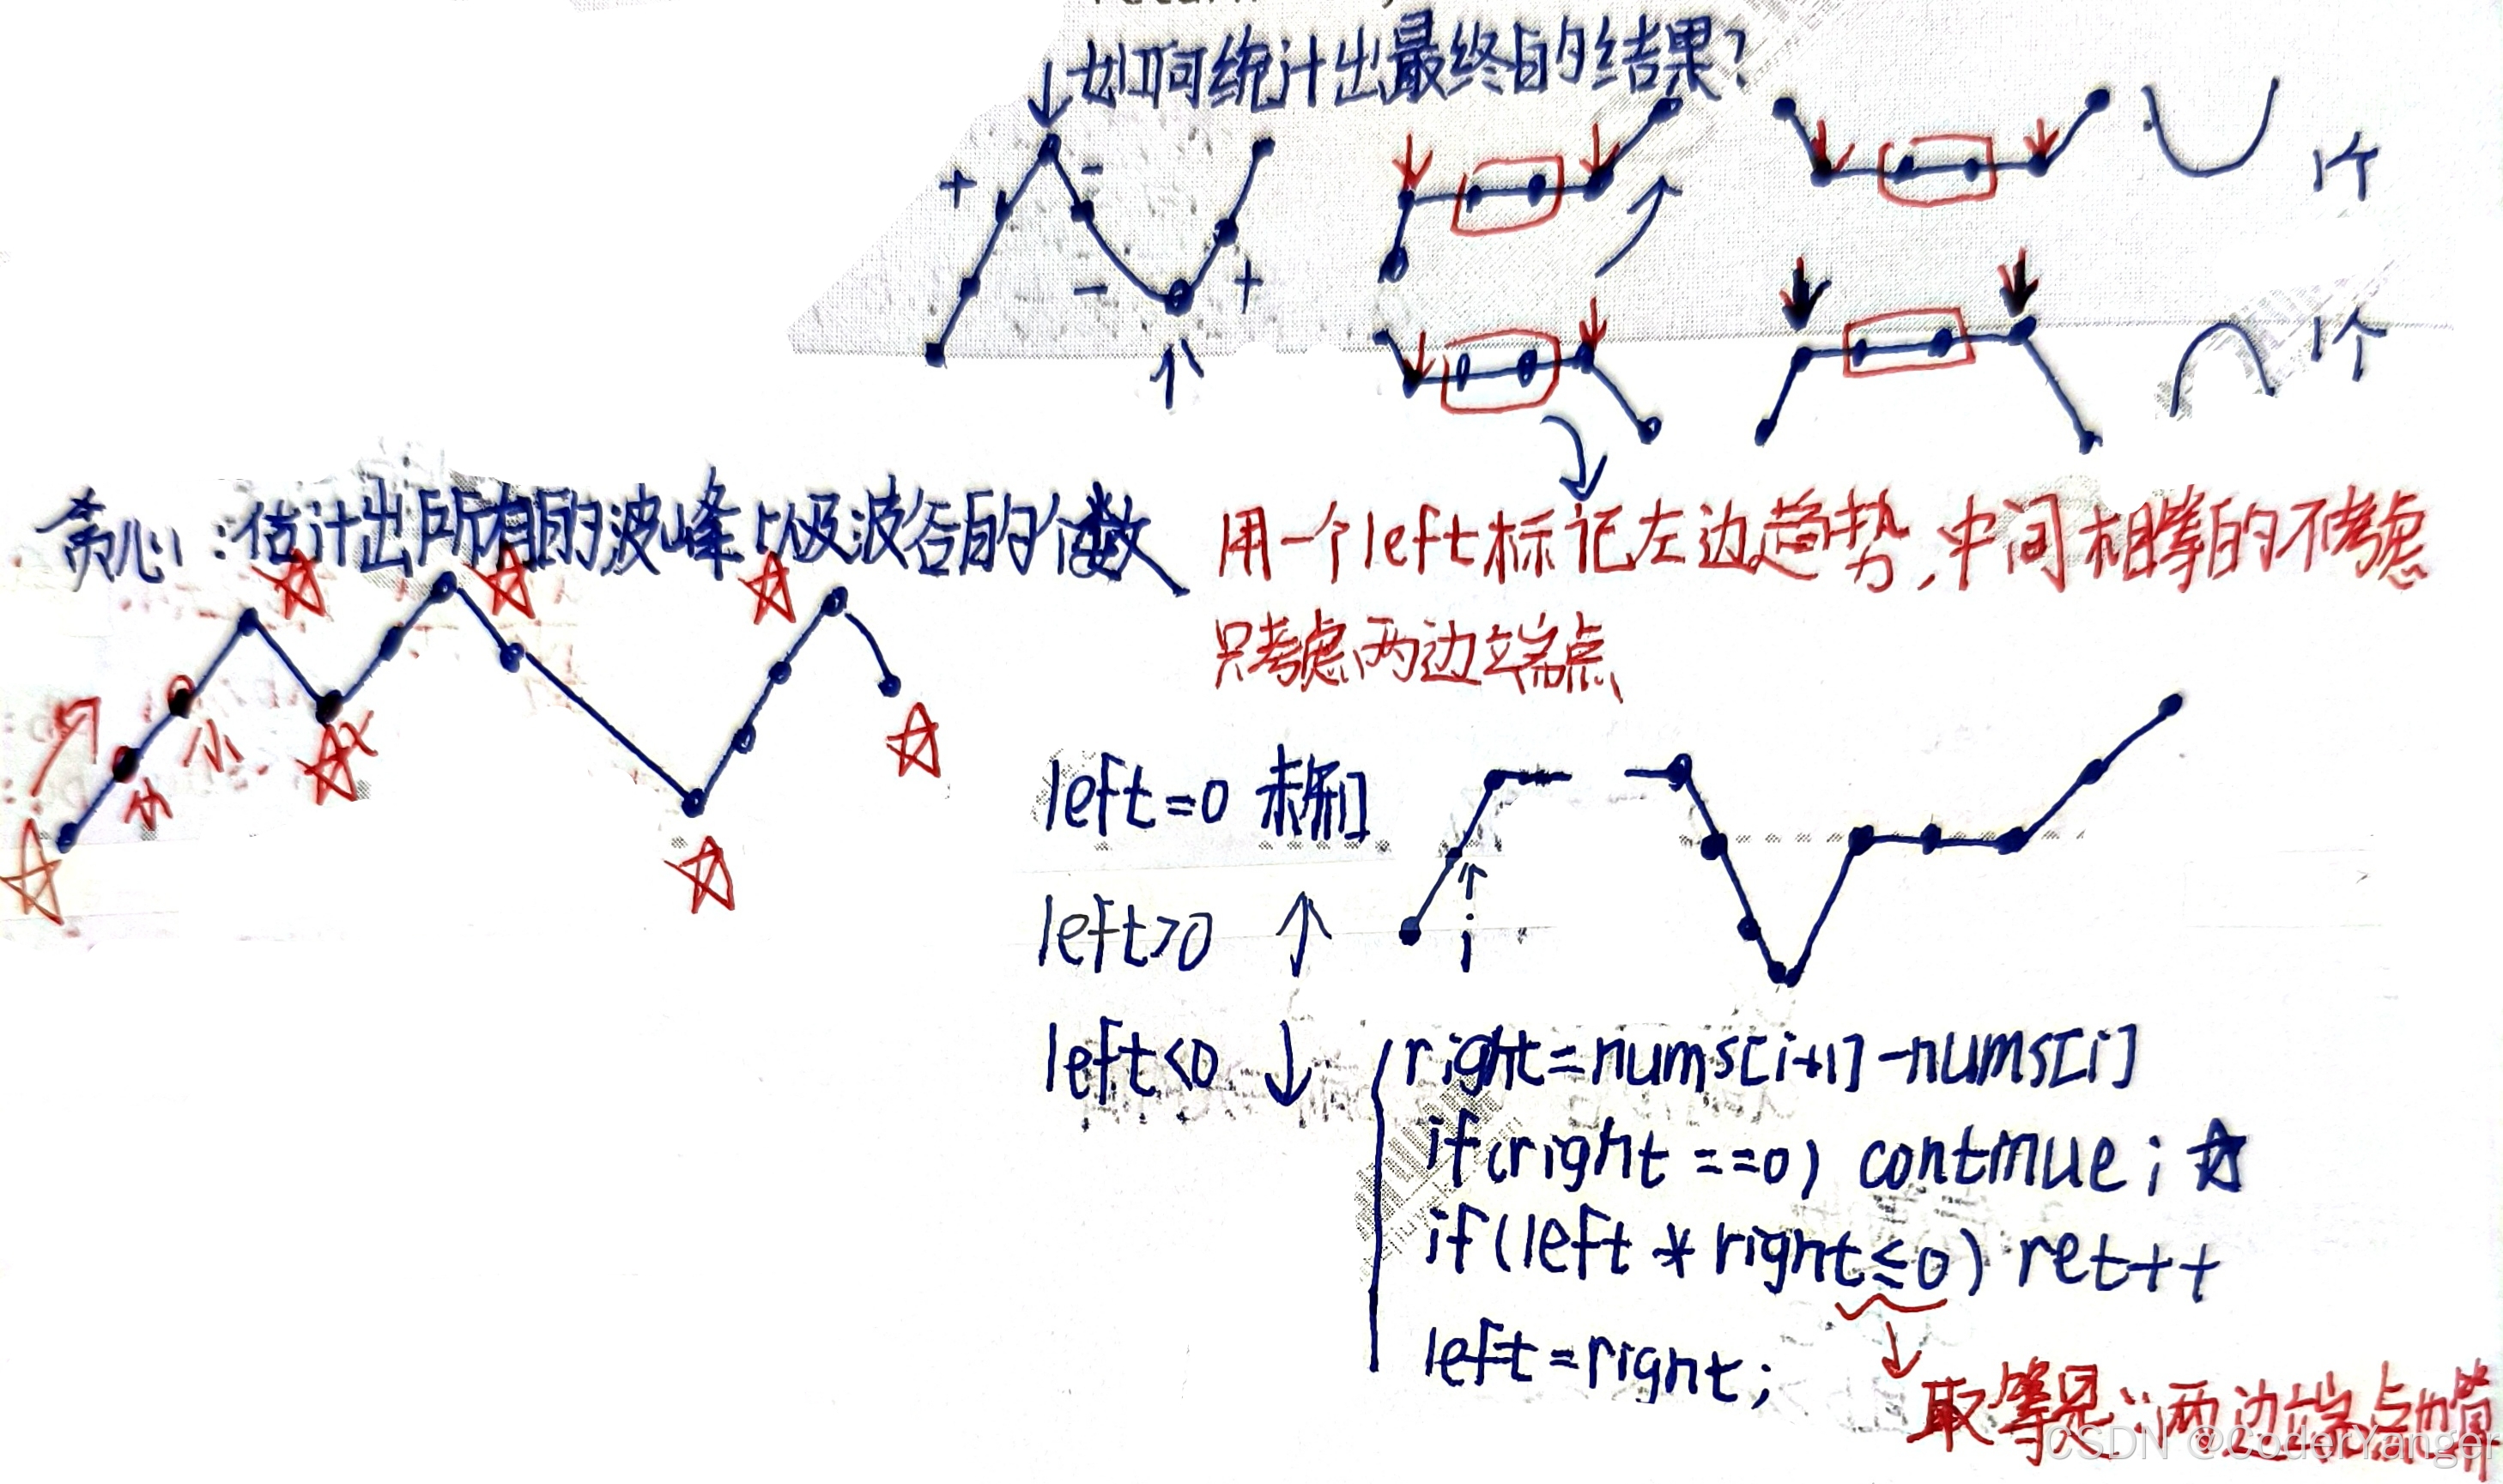 如何统计出最终的结果?
+
-
-
+
1个
1个
贪心:估计出所有的波峰以及波谷的个数
用一个left标记左边趋势,中间相等的不考虑
只考虑两边端点
小
小
left=0
left>0
i
left<0
right=nums[i+1]-nums[i]
if(right==0) continue;
if(left*right≤0) ret++
left=right;
取等是∵两边端点也算
CSDN @CoderYanger